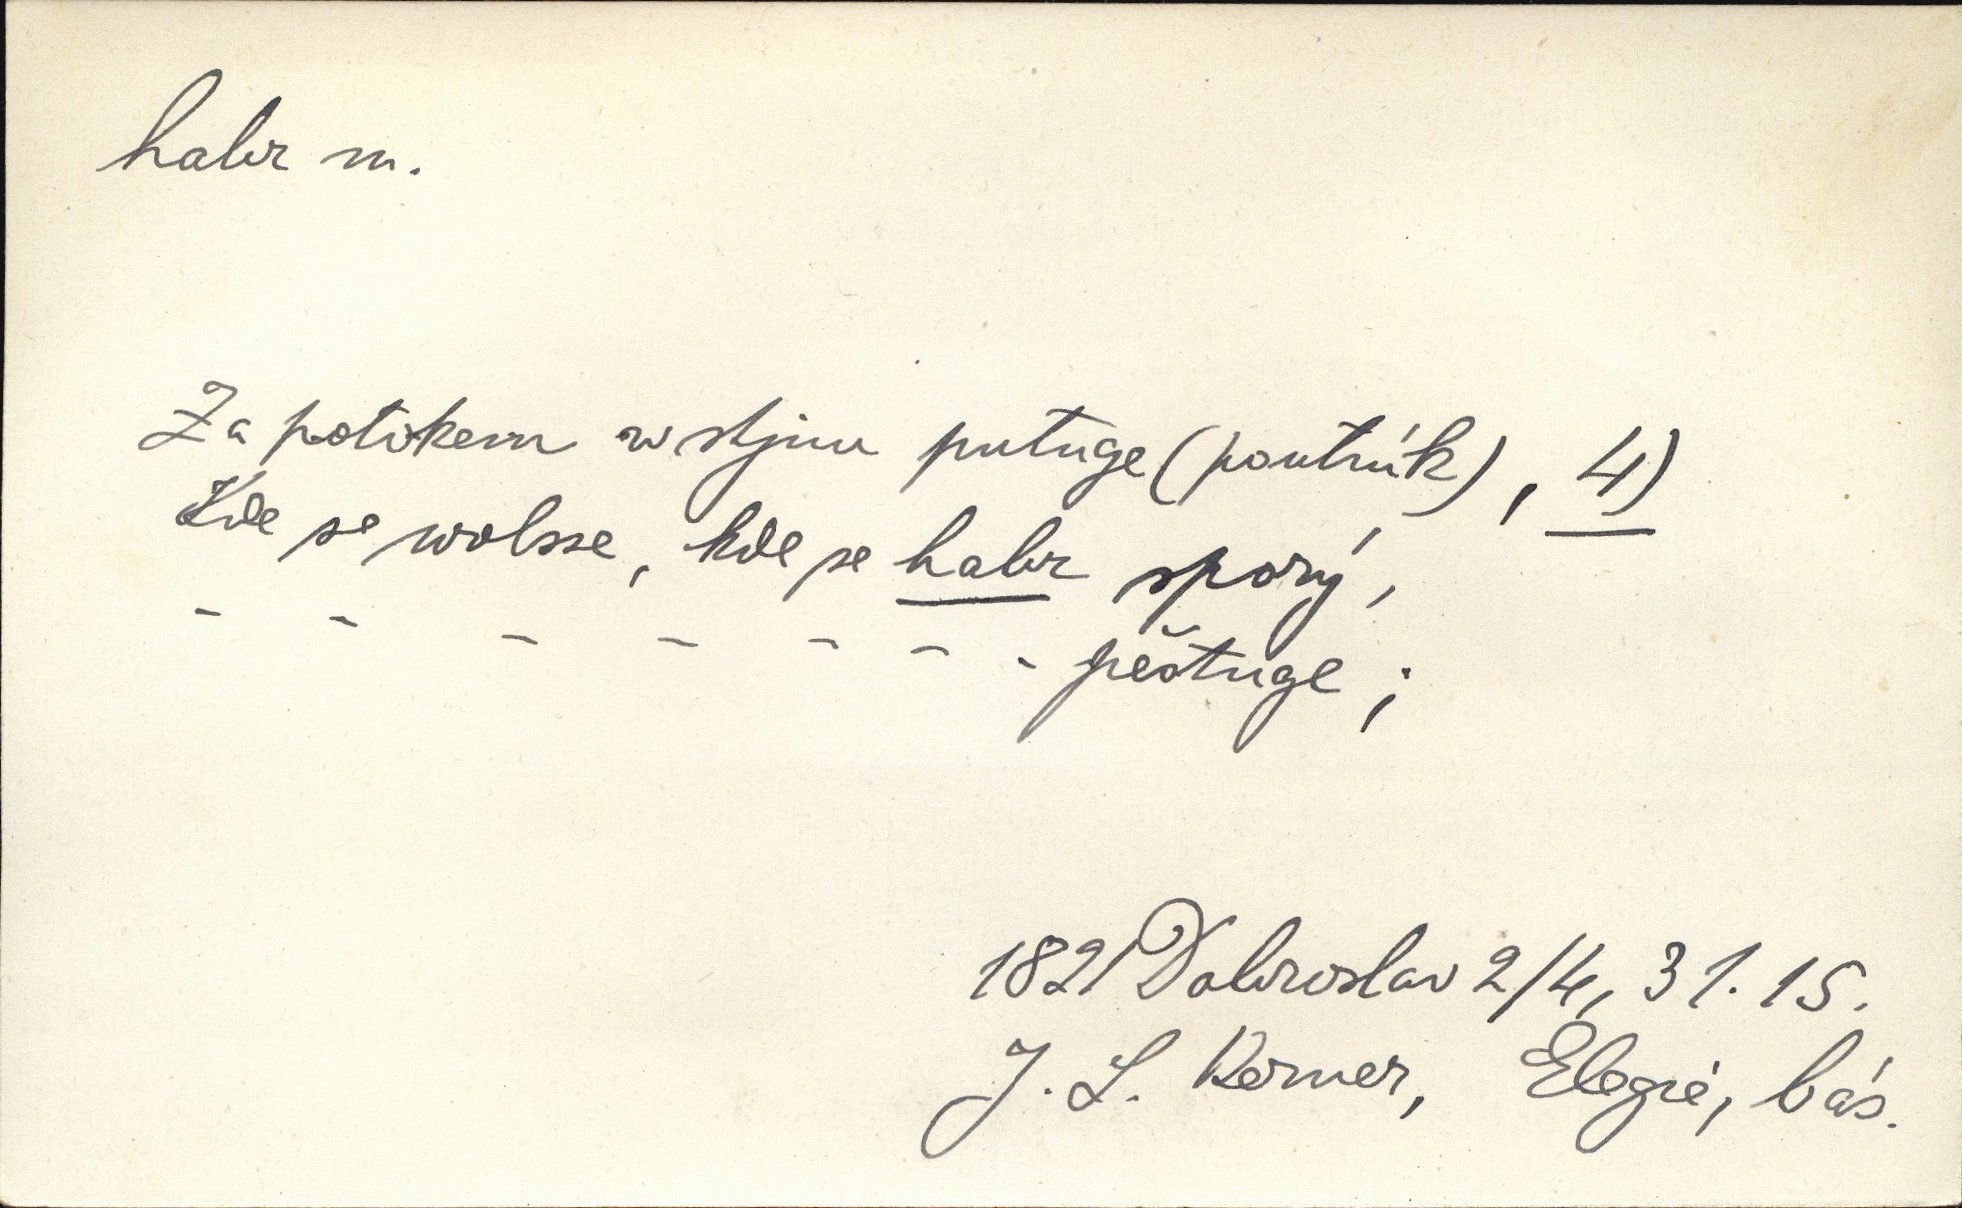 habr m.
Za potokem w stjnu putuge (poutník), 4)
Kde se wolsse, kde se habr sporý,
- - - - - - - pěstuge;
1821 Dobroslav 2/4, 31. 15.
J. L. Kerner, Elegie, bás.